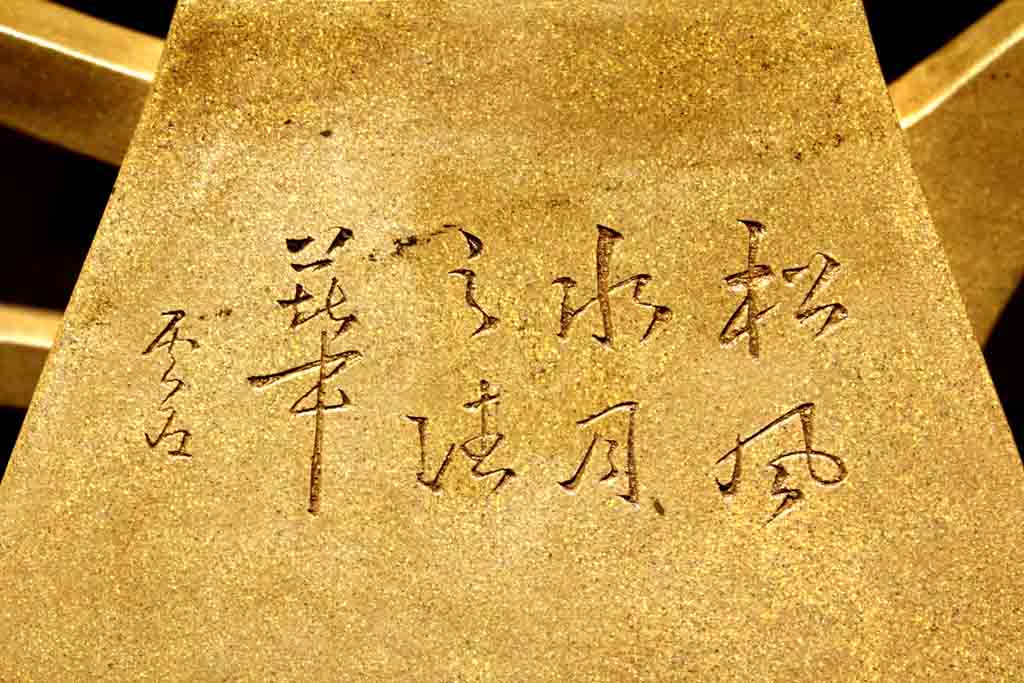 松風
水月
之清
華